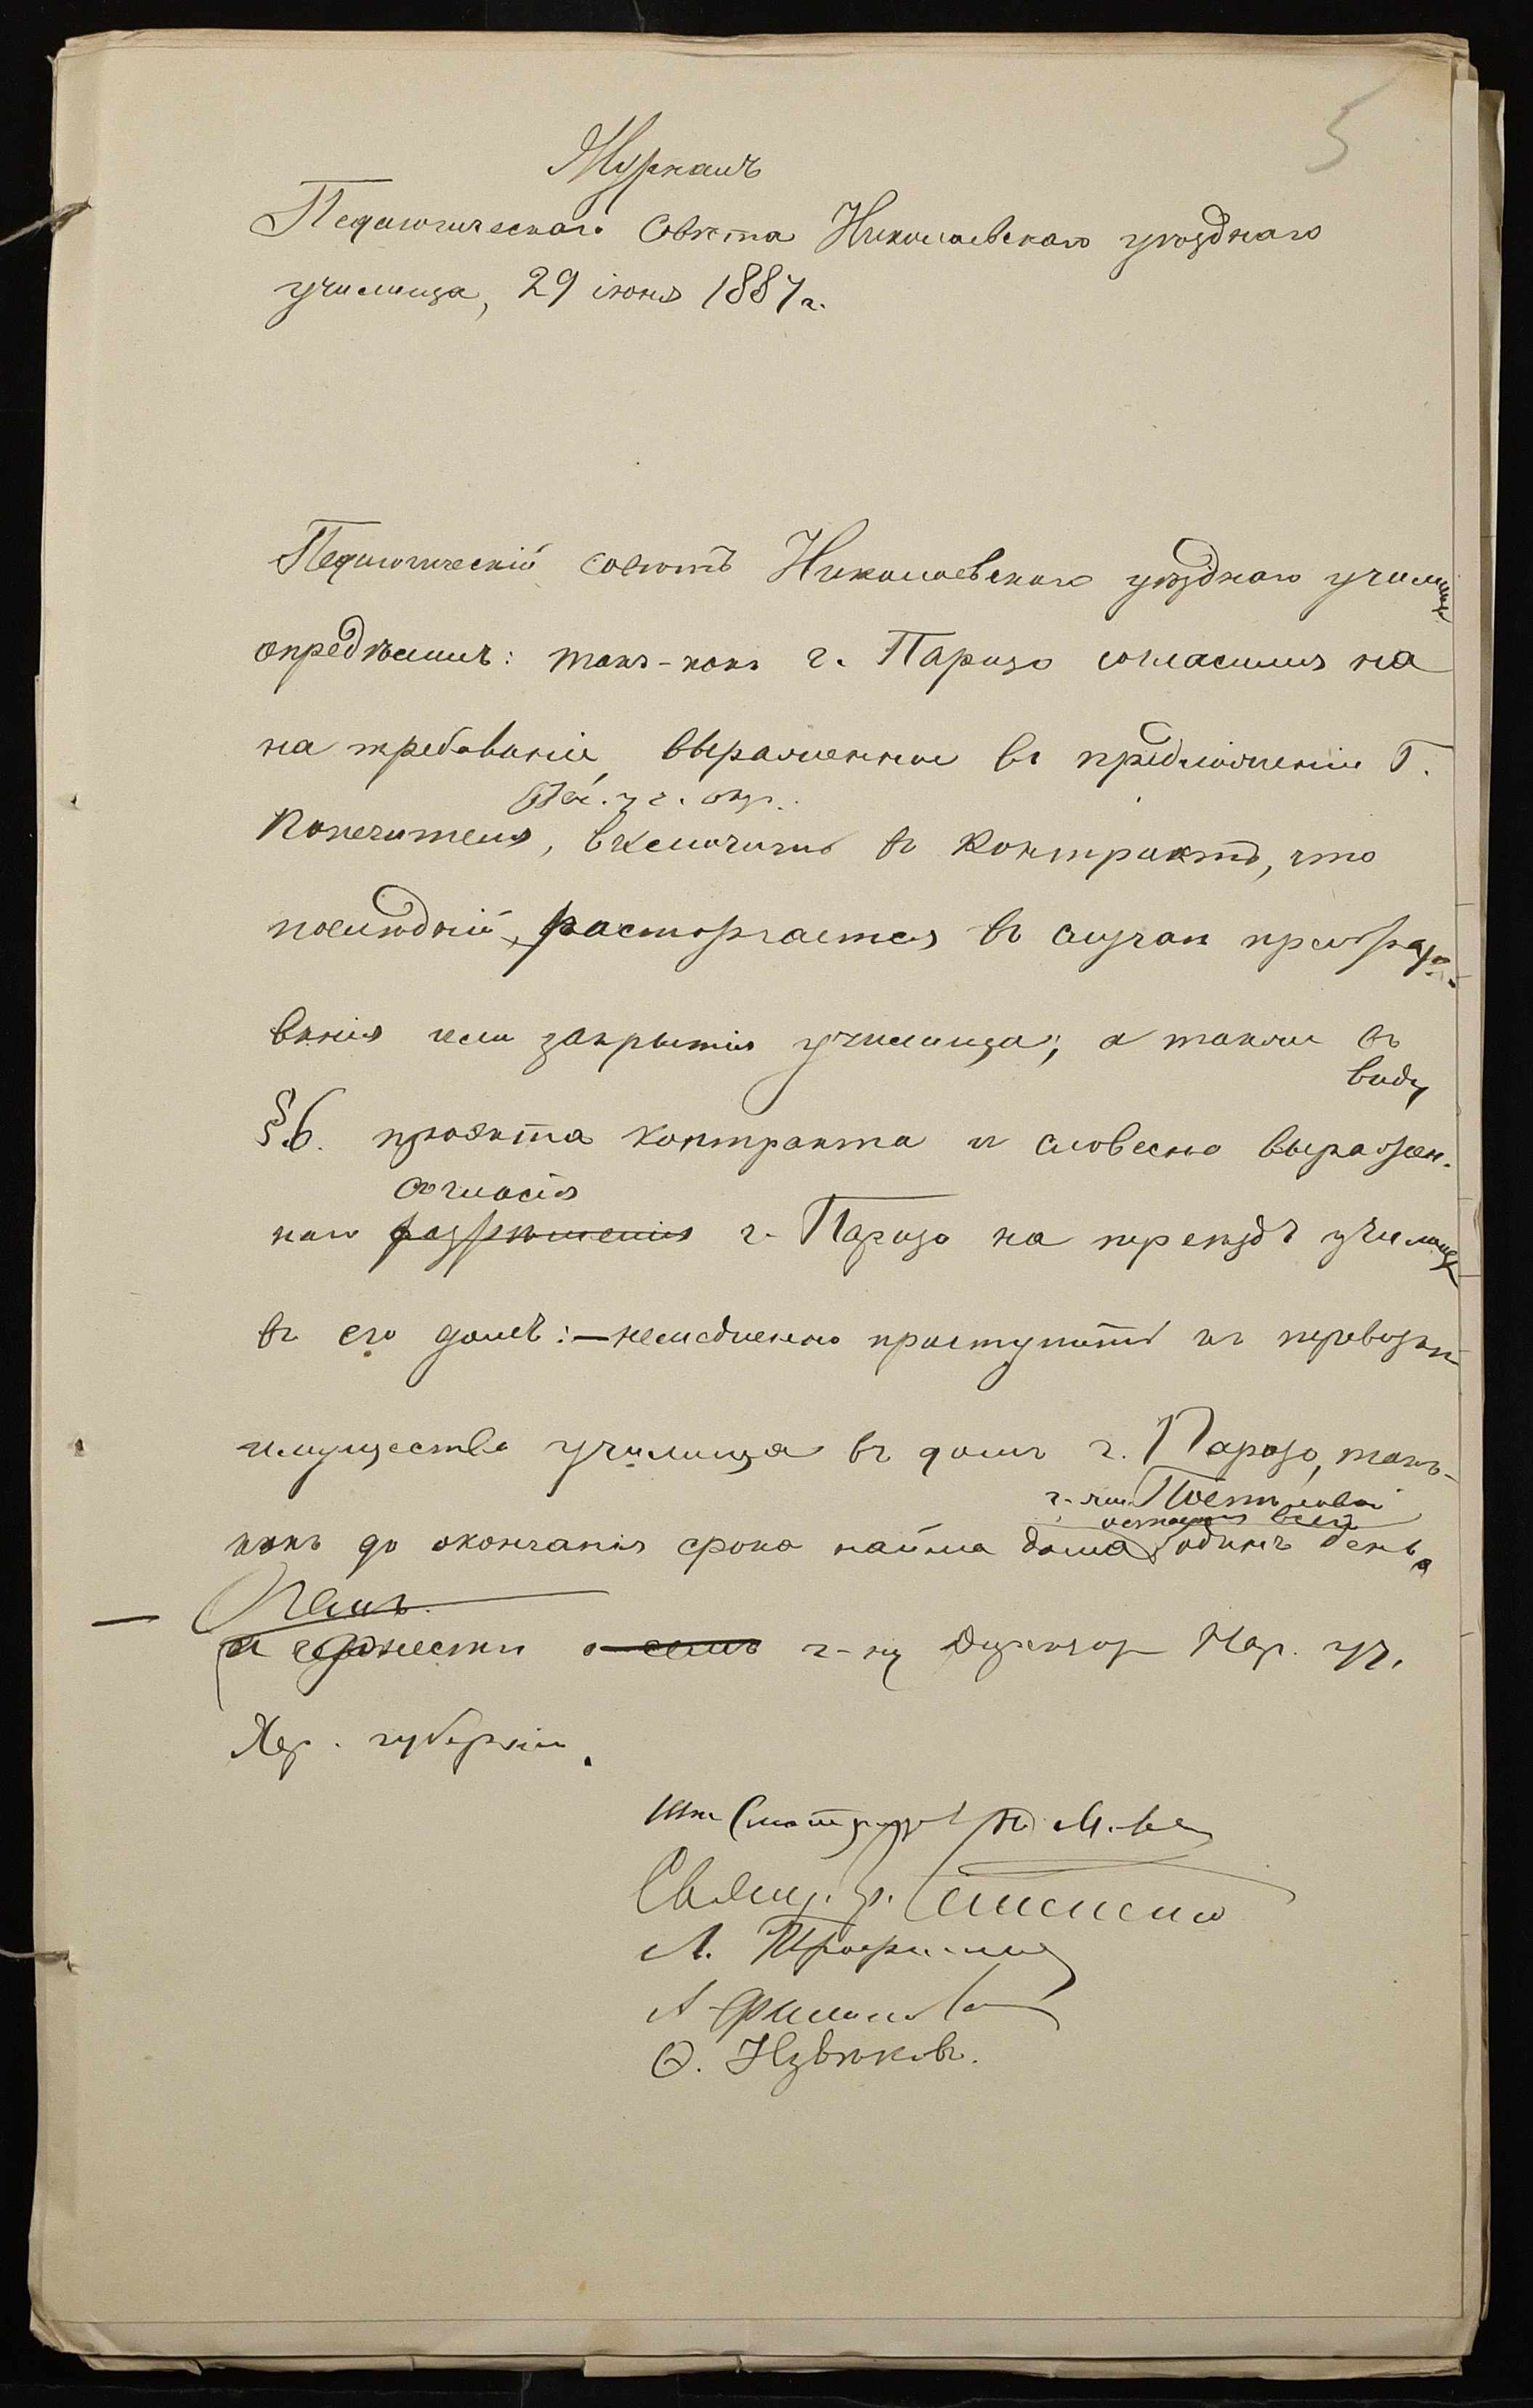 5
Журналъ
Педагогическаго Совѣта Николаевскаго уѣзднаго
училища, 29 іюня 1887 г.
Педагогическій совѣтъ Николаевскаго уѣзднаго училища
опредѣлилъ: такъ-какъ г. Паризо согласился на
на требованіе, выраженное въ предложеніи Г.
уч. окр.
Попечителя, включить въ контрактъ, что
послѣдній, расторгается въ случаѣ преобразо-
ванія или закрытія училища; а также въ
виду
§ 6. проэкта контракта и словесно выражен-
согласія
наго разрѣшенія г. Паризо на переѣздъ училища
въ его домъ:—немедленно приступить къ перевозкѣ
имущества училища въ домъ г. Паризо, такъ-
г-жи
остался всего
какъ до окончанія срока найма дома одинъ день,
О чемъ
и донести о семъ г-ну Директору Нар. уч.
Хер. губерніи.
Шт. Смотритель
Свящ.
Л.
А.
Ѳ. Извѣковъ.